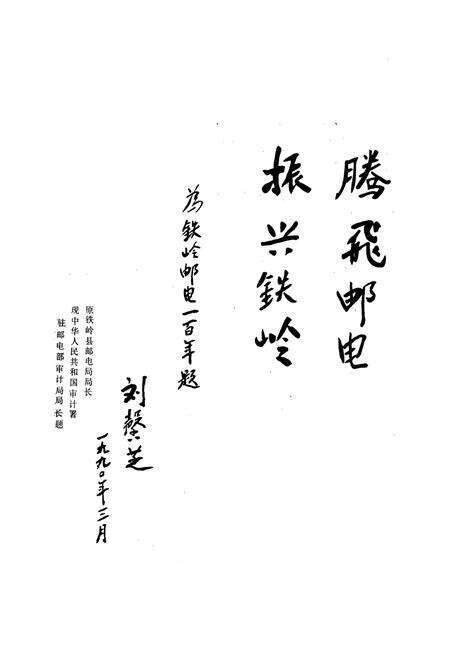 腾飛邮电
振兴铁岭
为铁岭邮电一百年题
原铁岭县邮电局局长
现中华人民共和国审计署
驻邮电部审计局局长题
刘馨芝
一九九〇年三月